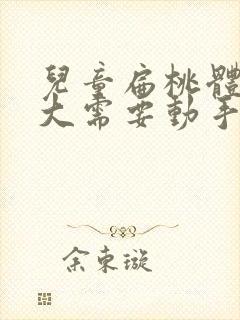 兒童扁桃體
大需要動手
余東璇